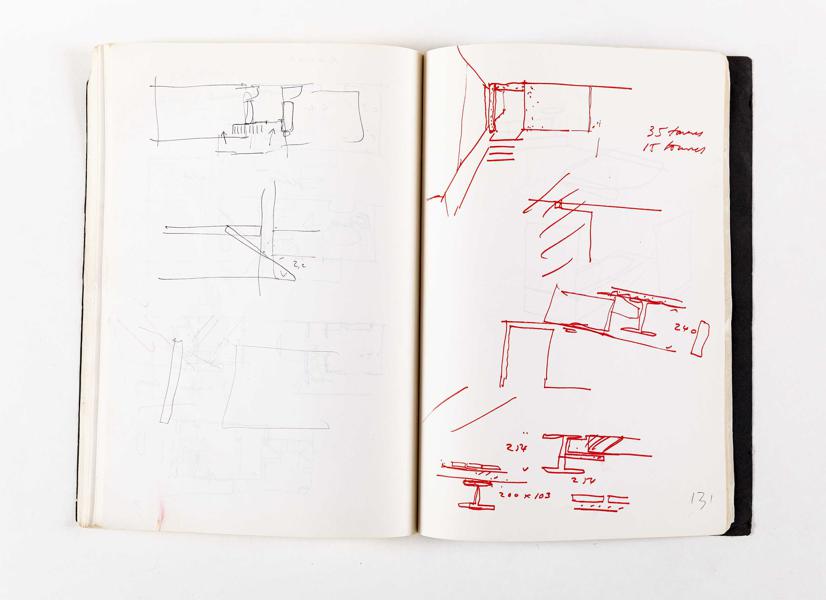 2,2
35 tonnes
15 tonnes
240
254
254
200 x 103
131